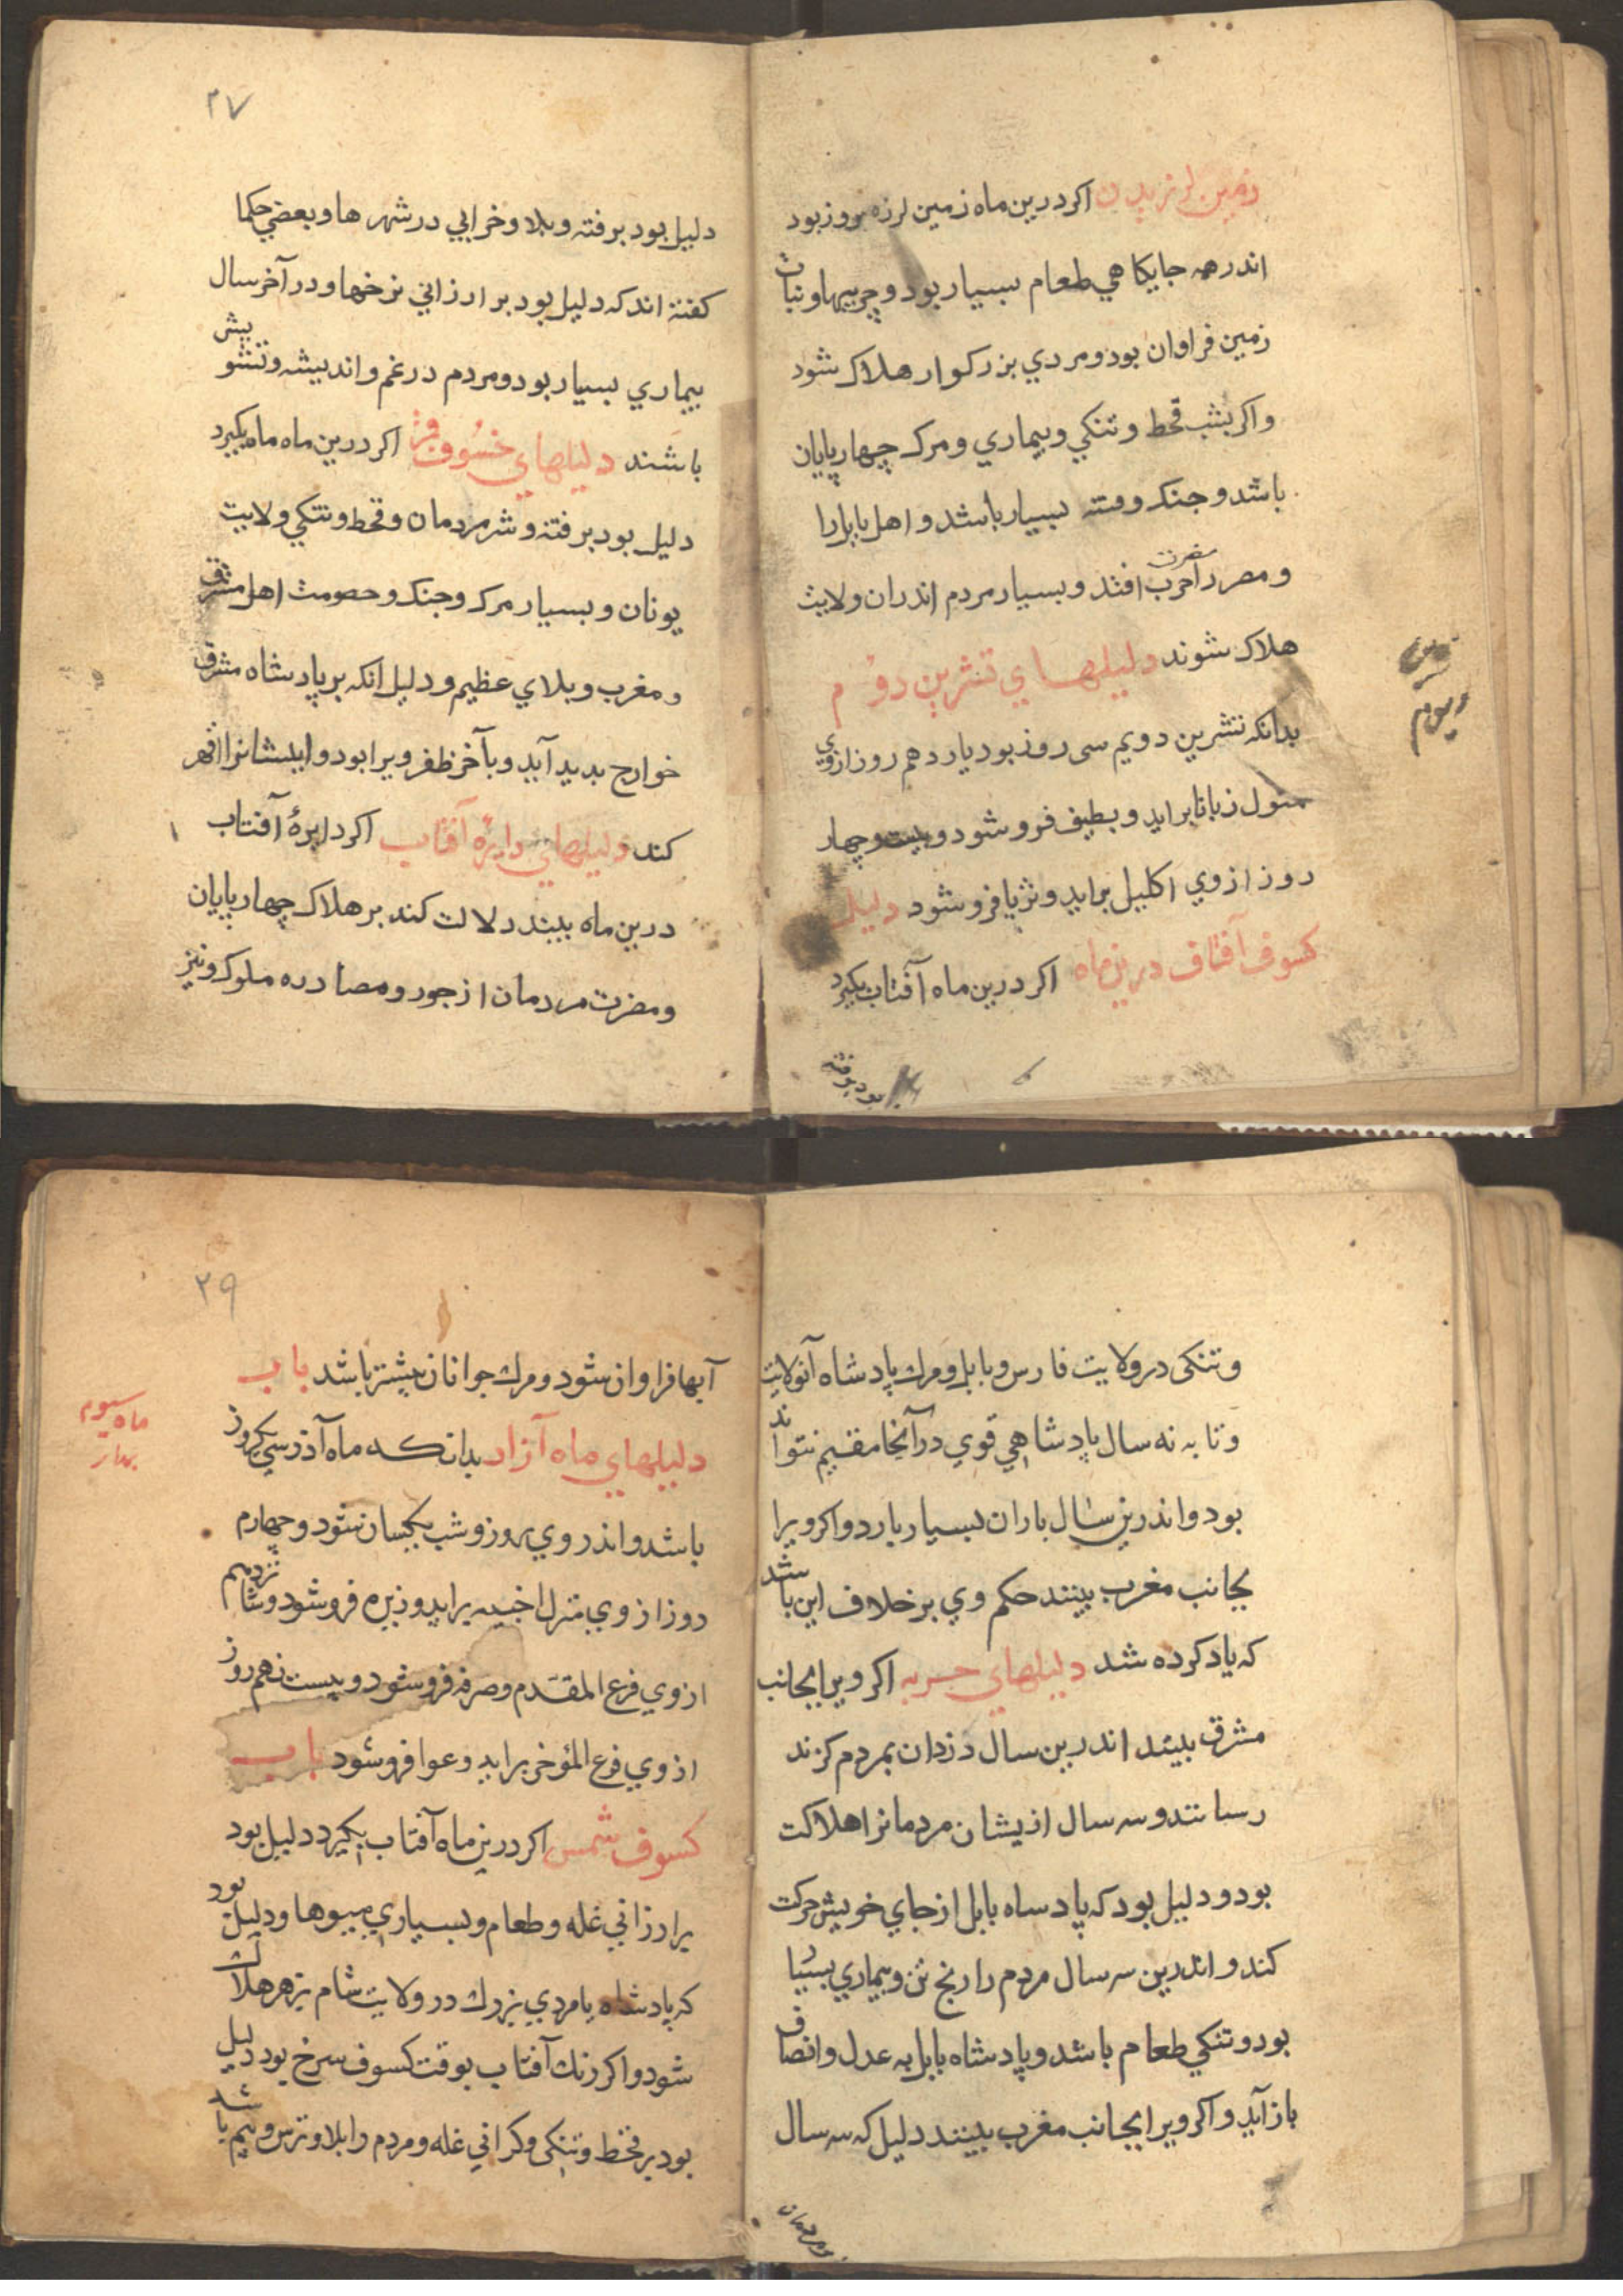 زمین لرزیدن اکر درین ماه زمین لرزه بروز بود
اندر همه جایکاهي طعام بسیار بود و چربیها و نبات
زمین فراوان بود و مردي بزرکوار هلاک شود
واکر بشب قحط و تنکي و بیماري و مرک چهارپایان
باشد و جنک و فتنه بسیار باشد و اهل بابل را
و مصر را حرب مضرت افتد و بسیار مردم اندران ولایت
هلاک شوند دلیلهاي تشرین دوم
بدانکه تشرین دویم سی روز بود یازدهم روز ازوي
منول زبانا براید و بطین فرو شود و بیست و چهار
روز ازوي اکلیل براید و ثریا فرو شود دلیل
کسوف آفتاف درین ماه اکر درین ماه آفتاب بکیرد
بود بر فتنه
تشرین
دویم
۲۷
دلیل بود بر فتنه و بلا و خرابي در شهرها و بعضي حکما
کفته اند که دلیل بود بر ارزاني نرخها و در آخر سال
بیماري بسیار بود و مردم در غم و اندیشه و تشویش
باشند دلیلهاي خسوف اکر درین ماه ماه بکیرد
دلیل بود بر فتنه و شر مردمان و قحط و تنکي ولایت
یونان و بسیار مرک و جنک و خصومت اهل مشرق
و مغرب و بلاي عظیم و دلیل انکه بر پادشاه مشرق
خوارج بدید آید و بآخر ظفر ویرا بود و ایشانرا قهر
کند دلیلهاي دایره آفتاب اکر دایرهٔ آفتاب
درین ماه بیند دلالت کند بر هلاک چهارپایان
و مضرت مردمان از جور و مصادره ملوک و نیز
وتنکی در ولایت فارس و بابل و مرك پادشاه آنولایت
و تا به نه سال پادشاهي قوي در آنجا مقیم نتواند
بود و اندرین سال باران بسیار بارد و اکر ویرا
بجانب مغرب بینند حکم وي بر خلاف این باشد
که یاد کرده شد دلیلهاي حربه اکر ویرا بجانب
مشرق بینند اندرین سال دزدان بمردم کزند
رسانند و سه سال ازیشان مردمانرا هلاکت
بود و دلیل بود که پادساه بابل از جاي خویش حرکت
کند و اندرین سه سال مردم را رنج تن و بیماري بسیا
بود و تنکي طعام باشد و پادشاه بابل به عدل و انصاف
باز آید و اکر ویرا بجانب مغرب بینند دلیل که سه سال
مردمان
۲۹
آبها فراوان شود و مرك جوانان بیشتر باشد باب
دلیلهاي ماه آزاد بدانکه ماه آذر سي یکروز
باشد و اندر وي روز و شب یکسان شود و چهارم
روز ازوي منزل اخبیه براید و زبره فرو شود و شانزدهم
ازوي فرع المقدم و صرفه فرو شود و بیست نهم روز
ازوي فرع المؤخر براید و عوا فرو شود باب
کسوف شمس اکر درین ماه آفتاب بکیرد دلیل بود
برارزاني غله و طعام و بسیاري میبوها و دلیل بود
که پادشاه یا مردي بزرك در ولایت شام بزهر هلاك
شود و اکر رنك آفتاب بوقت کسوف سرخ بود دلیل
بود بر قحط و تنکی و کراني غله و مردم را بلا و ترس و بیم باشد
ماه سیوم
بهار